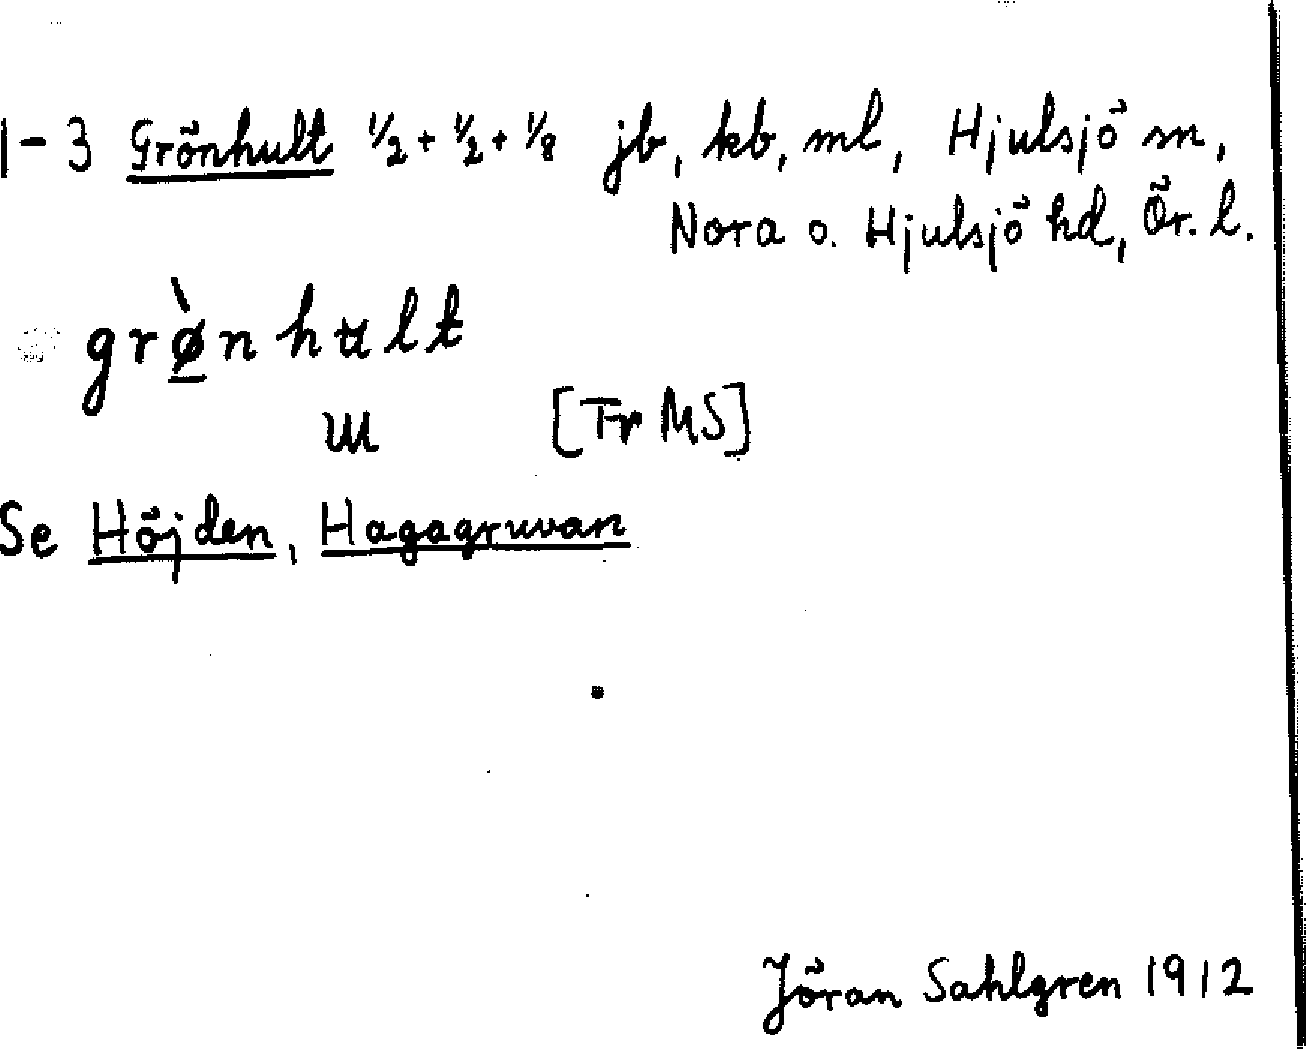 1-3 Grönhult 1/2 + 1/2 + 1/8 jb, kb, ml, Hjulsjö sn,
Nora o. Hjulsjö hd, Ör. l.
grø̲̀nhʉlt
[Fr MS]
Se Höjden, Hagagruvan
Jöran Sahlgren 1912